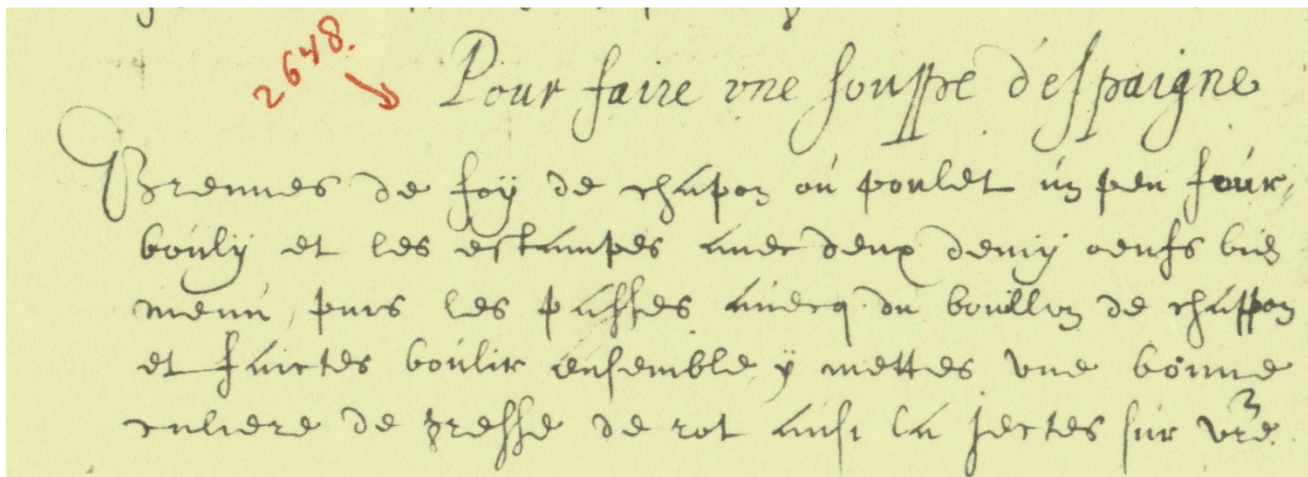 2648.
Pour faire vne souppe d'espaigne
Brennes de foÿ de chapon oú poulet ún peu foúr,
boúly et les estampes auec deux demÿ oeufs bie
menú, puis les passes auecq du boúillon de chappon
et faictes boúlir ensemble ÿ mettes vne bonne
culiere de gresse de rot ainsi la jectes súr vre.